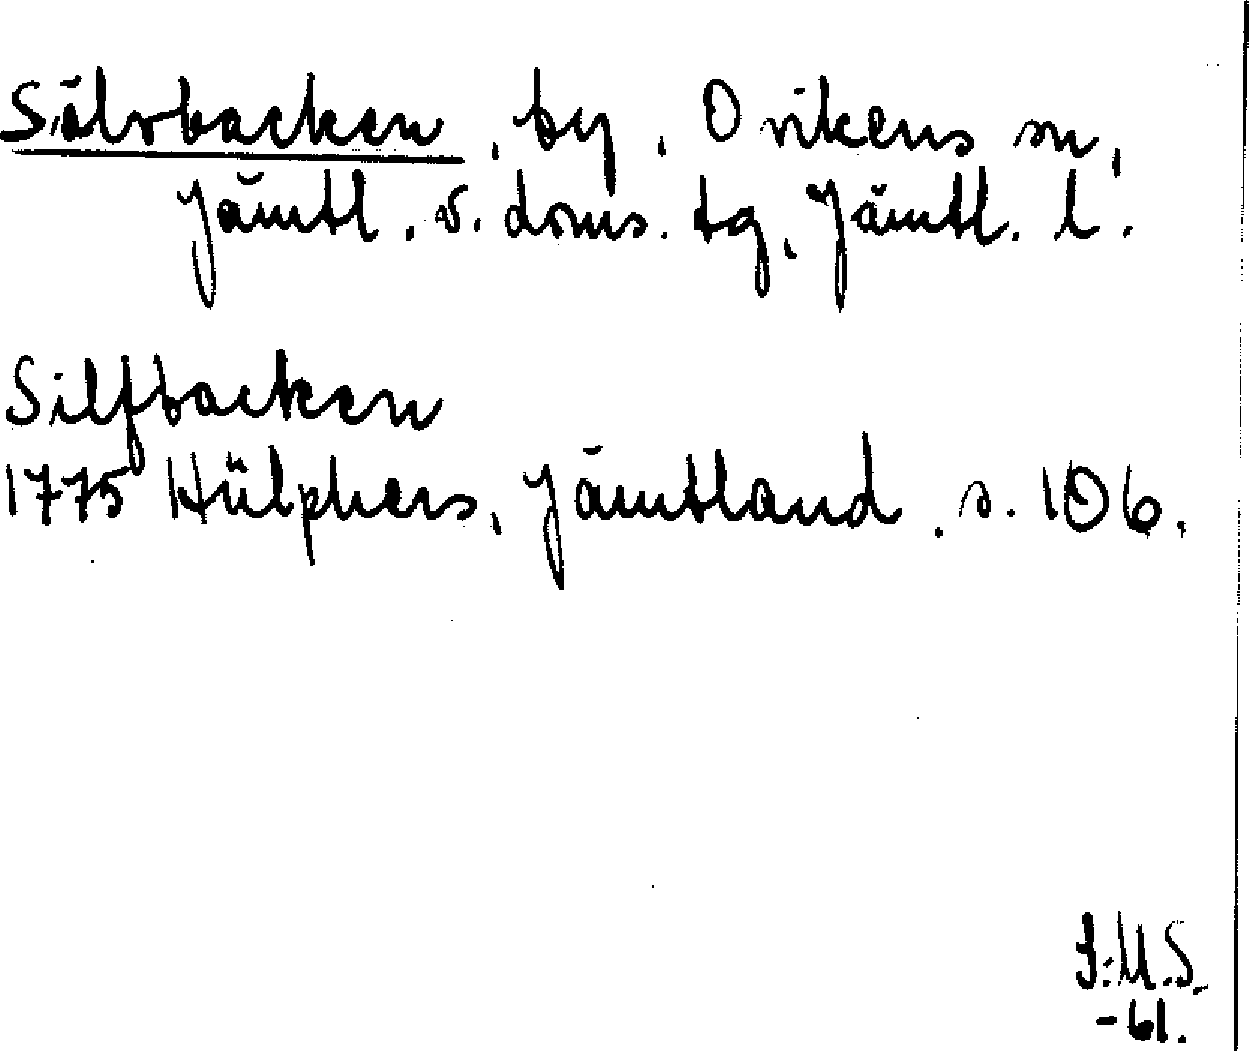 Sälvbacken, by, Ovikens sn,
Jämtl. v. doms. tg, Jämtl. l.
Silfbacken
1775 Hülphers, Jämtland. s. 106.
I.M.S.
-61.